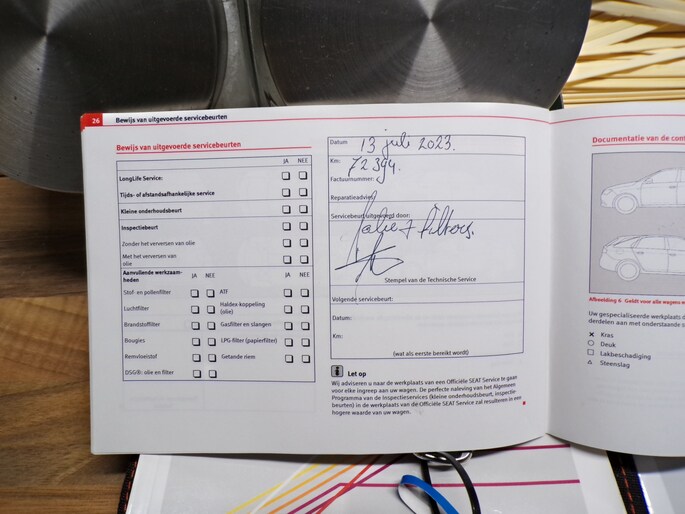 26
Bewijs van uitgevoerde servicebeurten
Bewijs van uitgevoerde servicebeurten
JA NEE
LongLife Service:
Tijds- of afstandsafhankelijke service
Kleine onderhoudsbeurt
Inspectiebeurt
Zonder het verversen van olie
Met het verversen van
olie
Aanvullende werkzaam-
heden
JA NEE
JA NEE
Stof- en pollenfilter
ATF
Luchtfilter
Haldex-koppeling
(olie)
Brandstoffilter
Gasfilter en slangen
Bougies
LPG-filter (papierfilter)
Remvloeistof
Getande riem
DSG®: olie en filter
Datum 13 juli 2023.
Km: 72394.
Factuurnummer:
Reparatieadvies
Servicebeurt uitgevoerd door:
olie + filters.
Stempel van de Technische Service
Volgende servicebeurt:
Datum:
Km:
(wat als eerste bereikt wordt)
Let op
Wij adviseren u naar de werkplaats van een Officiële SEAT Service te gaan
voor elke ingreep aan uw wagen. De perfecte naleving van het Algemeen
Programma van de Inspectieservices (kleine onderhoudsbeurt, inspectie-
beurten) in de werkplaats van de Officiële SEAT Service zal resulteren in een
hogere waarde van uw wagen.
Documentatie van de con
Afbeelding 6 Geldt voor alle wagens
Uw gespecialiseerde werkplaats d
derdelen aan met onderstaande
Kras
Deuk
Lakbeschadiging
Steenslag